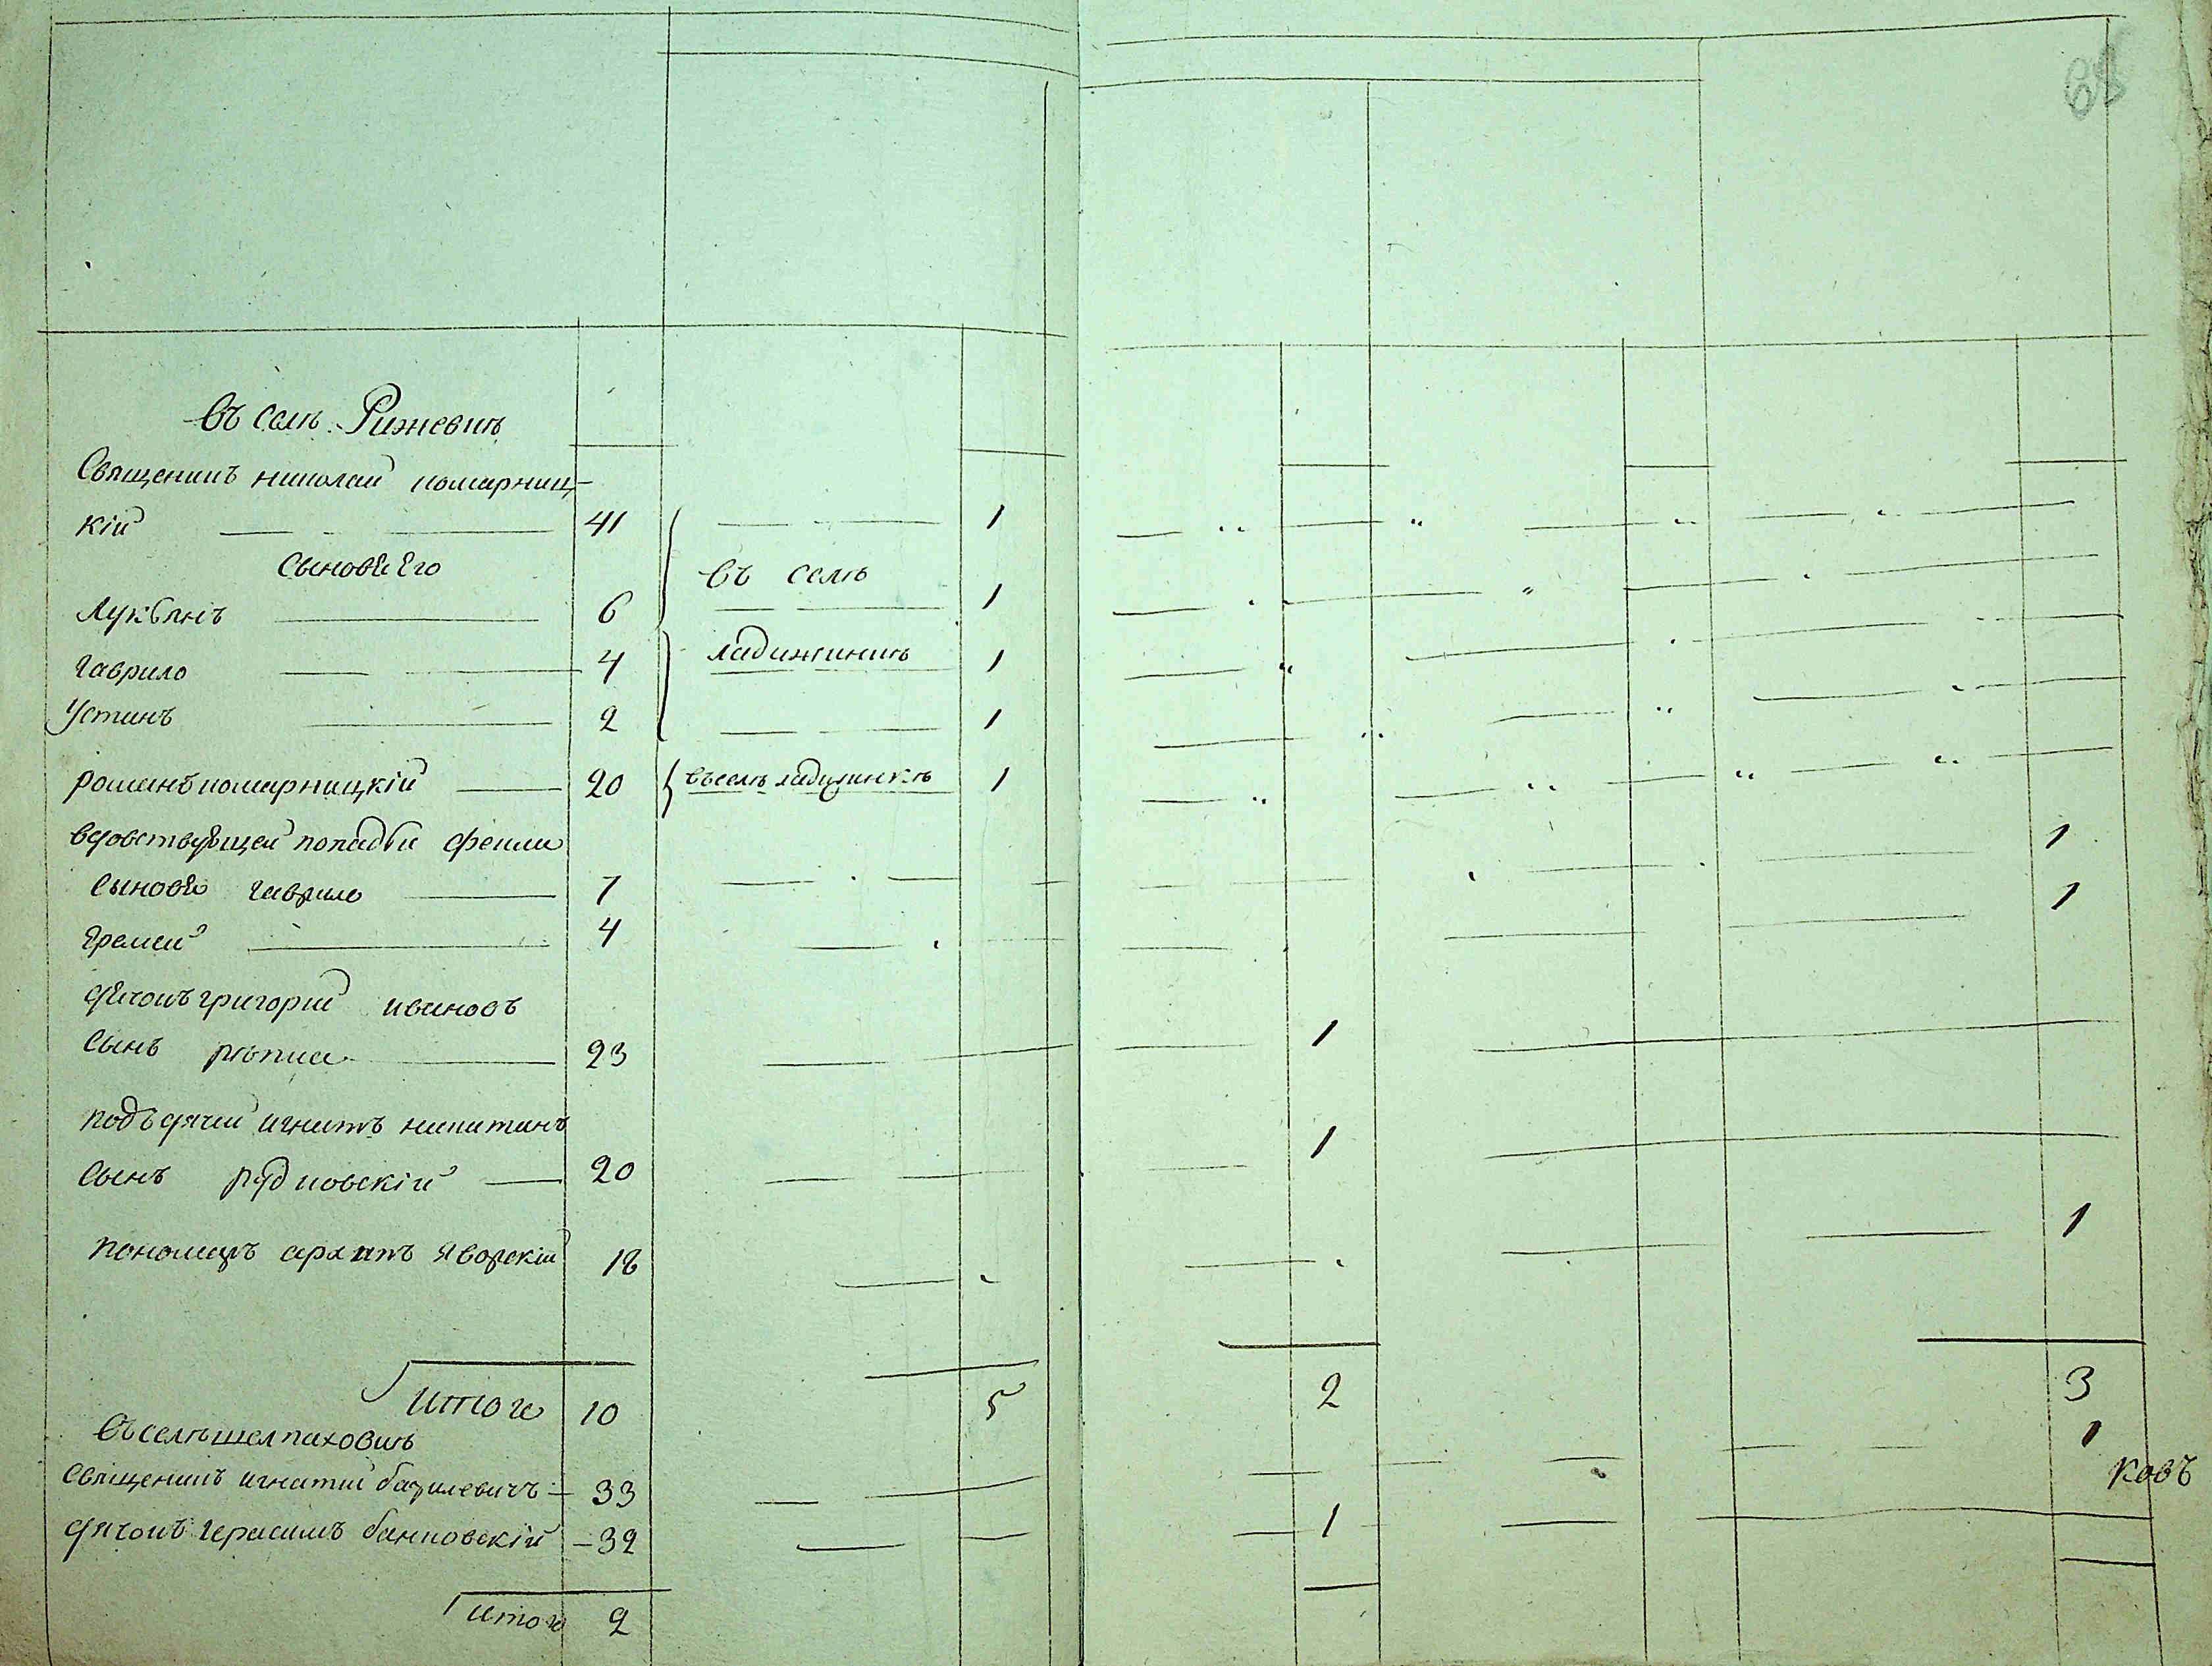 68
въ селѣ Рижевкѣ
Священикъ николай комарниц-
кій 41 1
Сыновя Его въ селѣ
Лукьянъ 6 1
гаврило 4 ладижинкѣ 1
Устинъ 2 1
романъ комарницкій 20 въ селѣ ладижинкѣ 1
вдовствующей попадьи
сыновя гаврило 7 1
Еремей 4 1
дячокъ григорій ивановъ
сынъ рѣпка 23 1
подъдячій игнатъ никитинъ
сынъ рудковскій 20 1
пономаръ архипъ Яворскій 18 1
итого 10 5 2 3
въ селѣ шелпаховкѣ
священикъ игнатій базилевичъ 33 1
ковъ
дячокъ герасимъ банковскій 32 1
итого 2